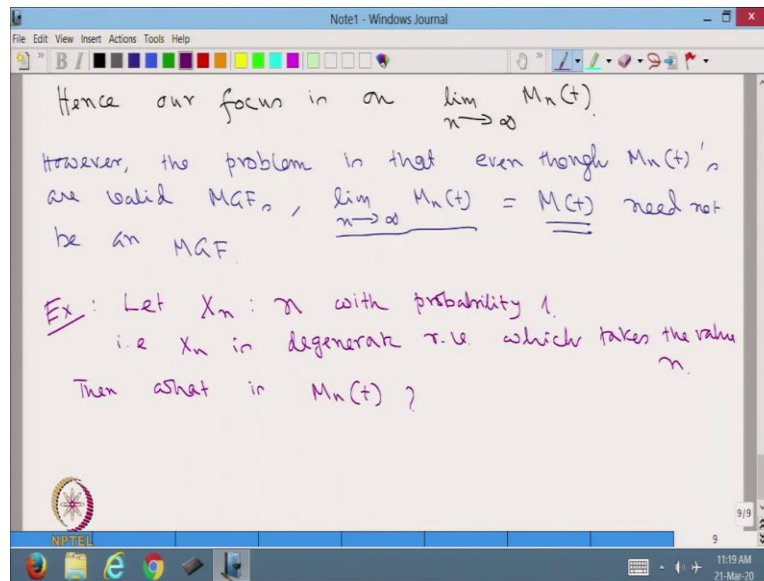 Note1 - Windows Journal
File Edit View Insert Actions Tools Help
Hence our focus is on lim n→∞ Mn(t).
However, the problem is that even though Mn(t)'s
are valid MGFs, lim n→∞ Mn(t) = M(t) need not
be an MGF.
Ex: Let Xn : n with probability 1.
i.e Xn is degenerate r.v. which takes the value
n.
Then what is Mn(t) ?
9/9
NPTEL
9
11:19 AM
21-Mar-20